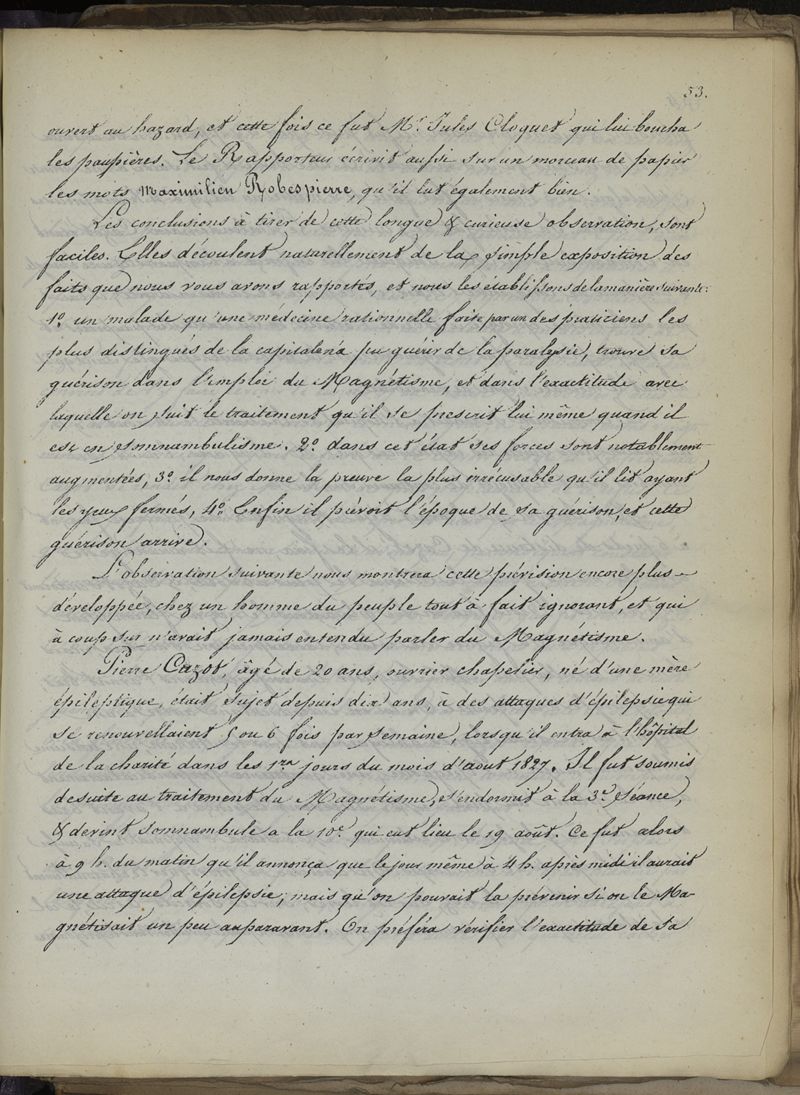 53.
ouvert au hazard, et cette fois ce fut Mr. Jules Cloquet qui lui boucha
les paupières. Le Rapporteur écrivit aussi sur un morceau de papier
les mots Maximilien Robespierre, qu'il lut également bien.
Les conclusions à tirer de cette longue & curieuse observation, sont
faciles. Elles découlent naturellement de la simple exposition des
faits que nous vous avons rapportés, et nous les établissons de la manière suivante:
1.º un malade qu'une médecine rationnelle faite par un des praticiens les
plus distingués de la capitale n'a pu guérir de la paralysie, trouve sa
guérison dans l'emploi du Magnétisme, et dans l'exactitude avec
laquelle on suit le traitement qu'il se prescrit lui même quand il
est en somnambulisme. 2.º dans cet état ses forces sont notablement
augmentées, 3.º il nous donne la preuve la plus irrécusable qu'il lit ayant
les yeux fermés, 4.º Enfin il prévoit l'époque de sa guérison, et cette
guérison arrive.
L'observation suivante nous montrera cette prévision encore plus
développée, chez un homme du peuple tout à fait ignorant, et qui
à coup sur n'avait jamais entendu parler du Magnétisme.
Pierre Cazot, âgé de 20 ans, ouvrier chapelier, né d'une mère
épileptique, était sujet depuis dix ans, à des attaques d'épilepsie qui
se renouvellaient 5 ou 6 fois par semaine, lorsqu'il entra à l'hôpital
de la charité dans les 1ers jours du mois d'aout 1827. Il fut soumis
desuite au traitement du Magnétisme, s'endormit à la 3.e séance,
& devint somnambule a la 10.e qui eut lieu le 19 août. Ce fut alors
à 9 h. du matin qu'il annonça que le jour même à 4 h. après midi il aurait
une attaque d'épilepsie; mais qu'on pouvait la prévenir si on le Ma-
gnétisait un peu auparavant. On préféra vérifier l'exactitude de sa